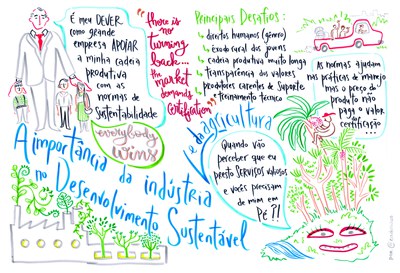 É meu DEVER
como grande
empresa APOIAR
a minha cadeia
produtiva
com as
normas de
Sustentabilidade
"there is
no
turning
back...
the
market
demands
certification"
everybody
wins
Principais Desafios:
• direitos humanos (gênero)
• êxodo rural dos jovens
• cadeia produtiva muito longa
• transparência dos valores
• produtores carentes de Suporte
e treinamento técnico
As normas ajudam
nas práticas de manejo
mas o preço do
produto não
paga o valor
certificação...
A importância da indústria
e da agricultura
no Desenvolvimento Sustentável
Quando vão
perceber que eu
presto SERVIÇOS VALIOSOS
e vocês precisam
de mim em
PÉ?!